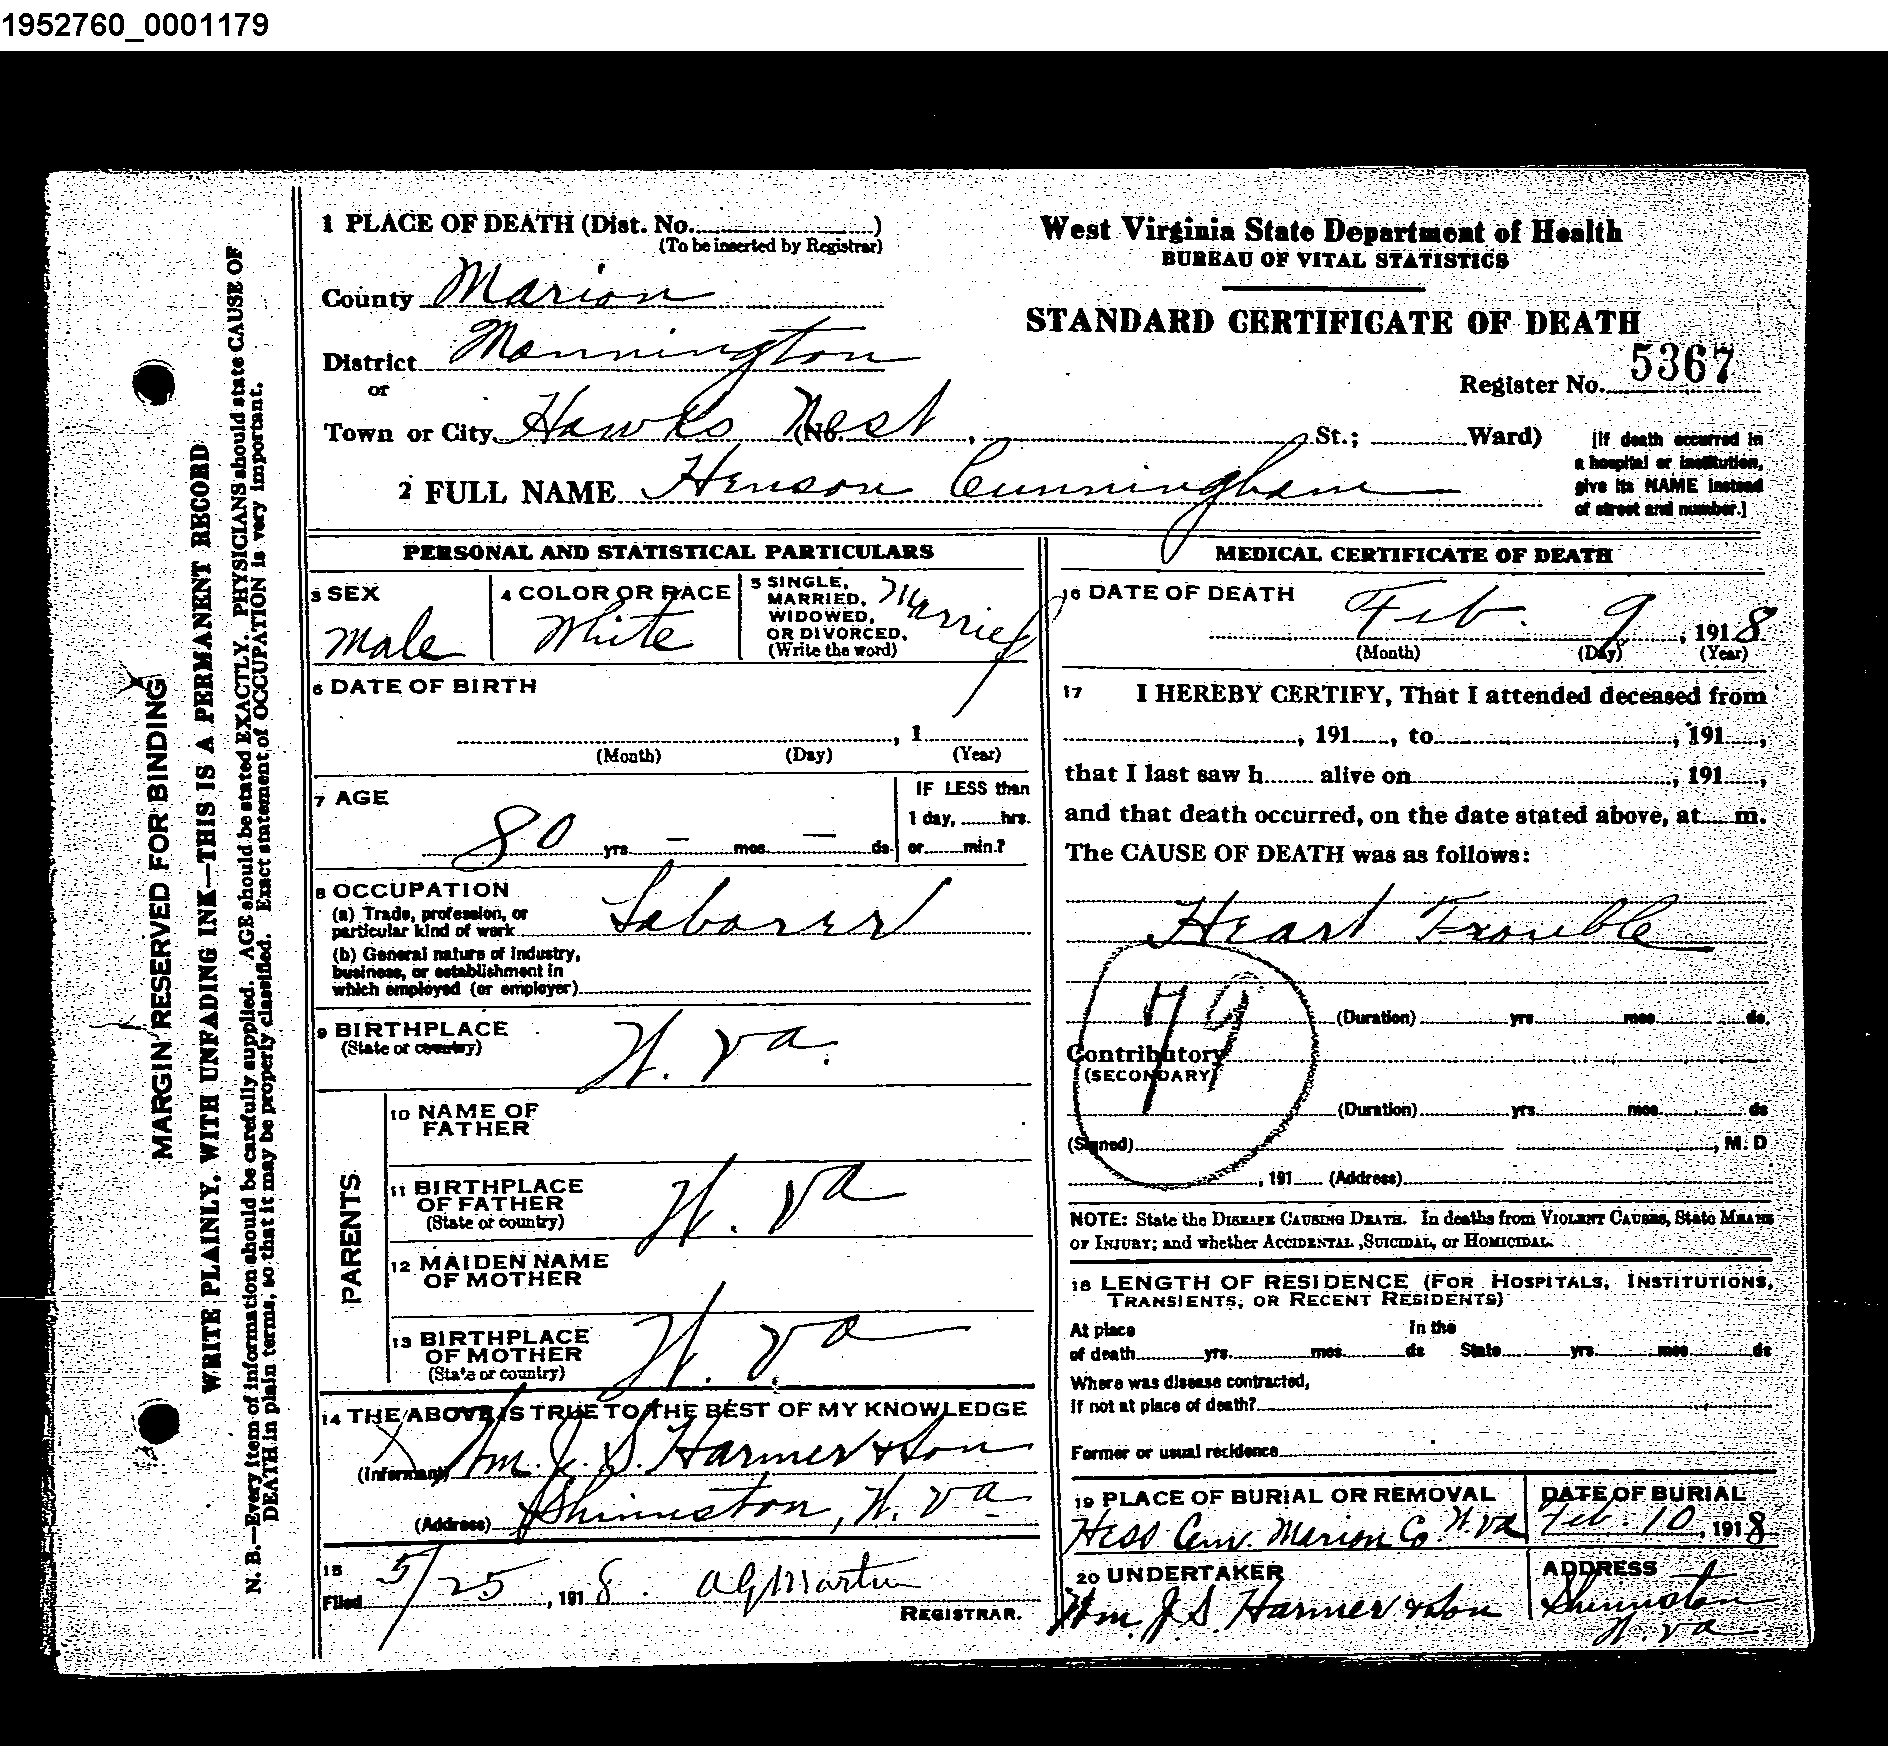 1952760_0001179
1 PLACE OF DEATH (Dist. No. )
(To be inserted by Registrar)
County Marion
District Mannington
or
Town or City Hawks Nest (No. , St.; Ward)
West Virginia State Department of Health
BUREAU OF VITAL STATISTICS
STANDARD CERTIFICATE OF DEATH
Register No. 5367
[If death occurred in
a hospital or institution,
give its NAME instead
of street and number.]
2 FULL NAME Henson Cunningham
PERSONAL AND STATISTICAL PARTICULARS
3 SEX
Male
4 COLOR OR RACE
White
5 SINGLE,
MARRIED,
WIDOWED,
OR DIVORCED,
(Write the word)
Married
6 DATE OF BIRTH
, 1
(Month) (Day) (Year)
7 AGE
80 yrs. — mos. — ds.
IF LESS than
1 day, hrs.
or min.?
8 OCCUPATION
(a) Trade, profession, or
particular kind of work Laborer
(b) General nature of industry,
business, or establishment in
which employed (or employer)
9 BIRTHPLACE
(State or country)
W. Va.
PARENTS
10 NAME OF
FATHER
11 BIRTHPLACE
OF FATHER
(State or country)
W. Va
12 MAIDEN NAME
OF MOTHER
13 BIRTHPLACE
OF MOTHER
(State or country)
W. Va
14 THE ABOVE IS TRUE TO THE BEST OF MY KNOWLEDGE
(Informant) Wm. J. S. Harmer & Son
(Address) Shinnston, W. Va
15
Filed 5/25, 1918. A G Martin
REGISTRAR.
MEDICAL CERTIFICATE OF DEATH
16 DATE OF DEATH
Feb. 9, 1918
(Month) (Day) (Year)
17 I HEREBY CERTIFY, That I attended deceased from
, 191 , to , 191 ,
that I last saw h alive on , 191 ,
and that death occurred, on the date stated above, at m.
The CAUSE OF DEATH was as follows:
Heart Trouble
79
(Duration) yrs. mos. ds.
Contributory
(SECONDARY)
(Duration) yrs. mos. ds
(Signed) , M. D
, 191 (Address)
NOTE: State the DISEASE CAUSING DEATH. In deaths from VIOLENT CAUSES, State MEANS
OF INJURY; and whether ACCIDENTAL ,SUICIDAL, or HOMICIDAL.
18 LENGTH OF RESIDENCE (FOR HOSPITALS, INSTITUTIONS,
TRANSIENTS, OR RECENT RESIDENTS)
At place In the
of death yrs. mos. ds State yrs. mos. ds
Where was disease contracted,
If not at place of death?
Former or usual residence
19 PLACE OF BURIAL OR REMOVAL
Hess Cem. Marion Co. W. Va
DATE OF BURIAL
Feb. 10, 1918
20 UNDERTAKER
Wm. J. S. Harmer & Son
ADDRESS
Shinnston
W. Va
MARGIN RESERVED FOR BINDING
WRITE PLAINLY, WITH UNFADING INK—THIS IS A PERMANENT RECORD
N. B.—Every item of information should be carefully supplied. AGE should be stated EXACTLY. PHYSICIANS should state CAUSE OF
DEATH in plain terms, so that it may be properly classified. Exact statement of OCCUPATION is very important.